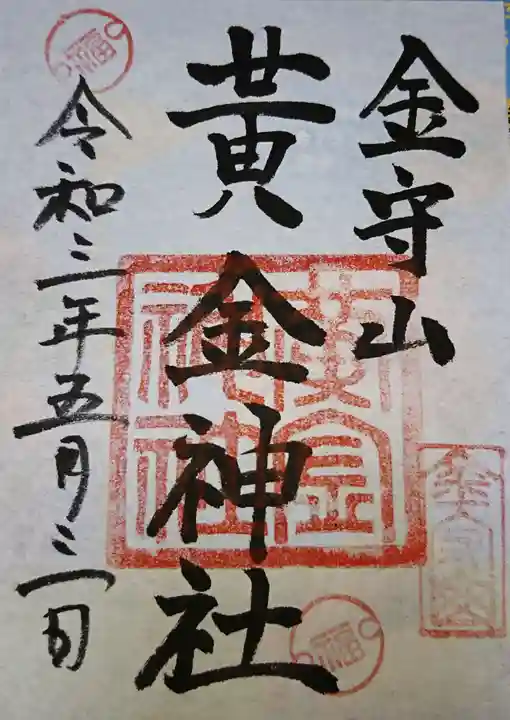 金守山
黄金神社
令和三年五月三日
黄金
神社
福
福